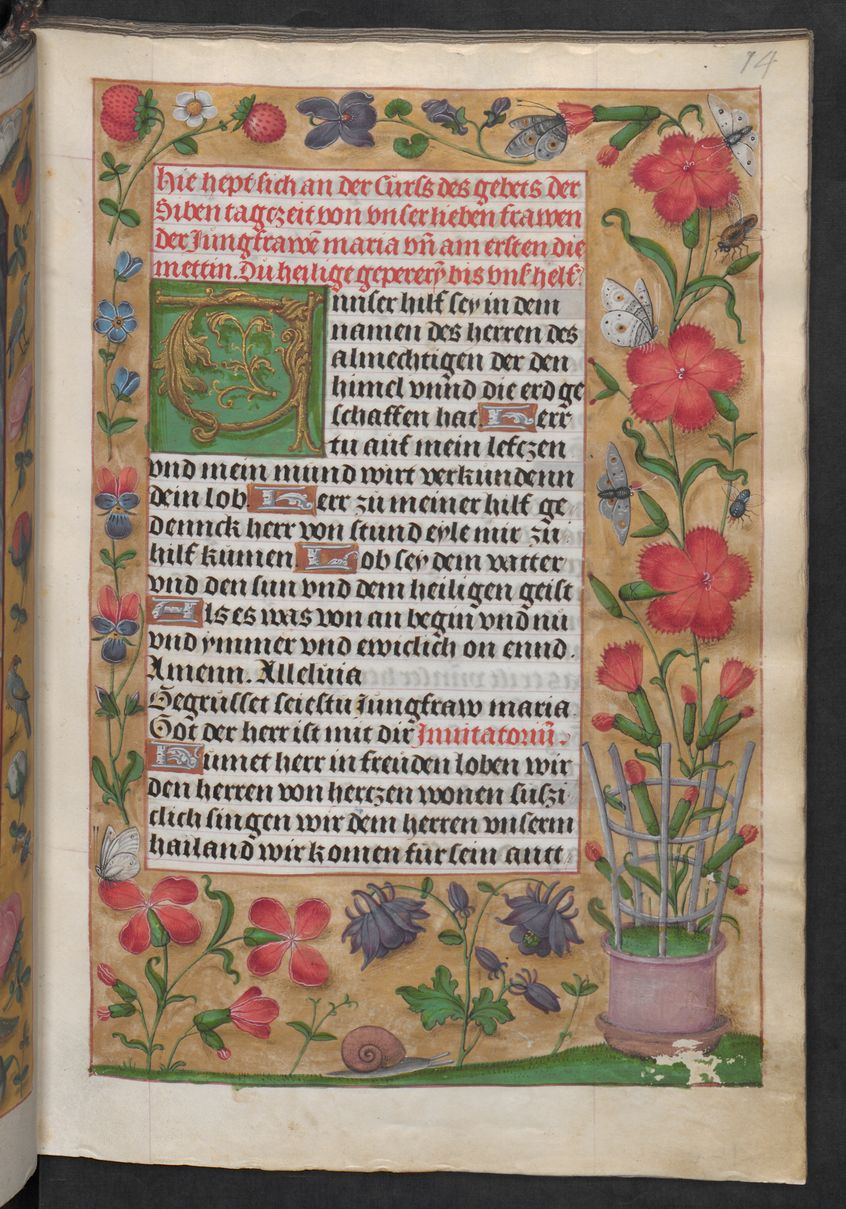 14
Hie hept sich an der Cürss des gebets der
Siben tagezeit von vnser lieben frawen
der Jungfrawē maria vn̄ am ersten die
mettin. Du heilige gepererÿ bis vnß helf.
In unser hilf sey in dem
namen des herren des
almechtigen der den
himel vnnd die erd ge
schaffen hat Herr
tu auf mein lefczen
vnd mein mund wirt verkundenn
dein lob. Herr zü meiner hilf ge
dennck herr von stund eyle mir zü
hilf kumen. Lob sey dem vatter
vnd den sun vnd dem heiligen geist
Als es was von an begin vnd nü
vnd ymmer vnd ewiclich on ennd.
Amenn. Alleluia
Gegrüsset seiestu Jungfraw maria.
Got der herr ist mit dir Inuitatoriū.
Kumet herr in freüden loben wir
den herren von hertzen wonen süszi
clich singen wir dem herren vnserm
hailand wir komen für sein antt